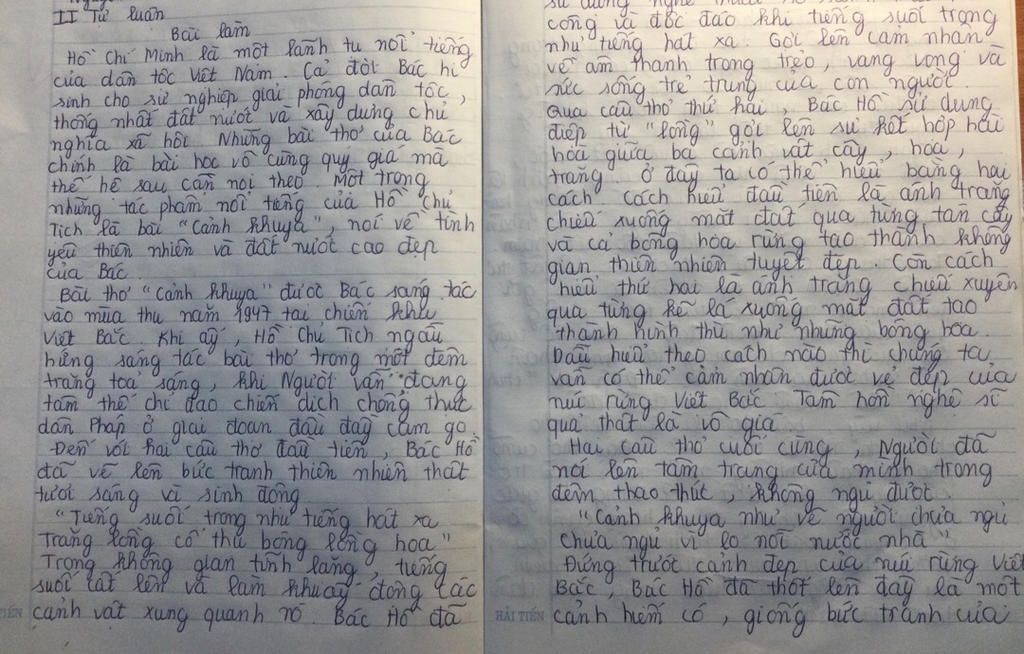 II Tự luận
Bài làm
Hồ Chí Minh là một lãnh tụ nổi tiếng
của dân tộc Việt Nam. Cả đời Bác hi
sinh cho sự nghiệp giải phóng dân tộc,
thống nhất đất nước và xây dựng chủ
nghĩa xã hội. Những bài thơ của Bác
chính là bài học vô cùng quý giá mà
thế hệ sau cần noi theo. Một trong
những tác phẩm nổi tiếng của Hồ Chủ
Tịch là bài "Cảnh khuya", nói về tình
yêu thiên nhiên và đất nước cao đẹp
của Bác.
Bài thơ "Cảnh khuya" được Bác sáng tác
vào mùa thu năm 1947 tại chiến khu
Việt Bắc. Khi ấy, Hồ Chủ Tịch ngẫu
hứng sáng tác bài thơ trong một đêm
trăng toả sáng, khi Người vẫn đang
tâm thế chỉ đạo chiến dịch chống thực
dân Pháp ở giai đoạn đầu đầy cam go.
Đến với hai câu thơ đầu tiên, Bác Hồ
đã vẽ lên bức tranh thiên nhiên thật
tươi sáng và sinh động
"Tiếng suối trong như tiếng hát xa
Trăng lồng cổ thụ bóng lồng hoa"
Trong không gian tĩnh lặng, tiếng
suối cất lên và làm khuấy động các
cảnh vật xung quanh nó. Bác Hồ đã
công và độc đáo khi tiếng suối trong
như tiếng hát xa. Gợi lên cảm nhận
về âm thanh trong trẻo, vang vọng và
sức sống trẻ trung của con người.
Qua câu thơ thứ hai, Bác Hồ sử dụng
điệp từ "lồng" gợi lên sự kết hợp hài
hoà giữa ba cảnh vật cây, hoa,
trăng. Ở đây ta có thể hiểu bằng hai
cách. Cách hiểu đầu tiên là ánh trăng
chiếu xuống mặt đất qua từng tán cây
và cả bông hoa rừng tạo thành không
gian thiên nhiên tuyệt đẹp. Còn cách
hiểu thứ hai là ánh trăng chiếu xuyên
qua từng kẽ lá xuống mặt đất tạo
thành hình thù như những bông hoa.
Dẫu hiểu theo cách nào thì chúng ta
vẫn có thể cảm nhận được vẻ đẹp của
núi rừng Việt Bắc. Tâm hồn nghệ sĩ
quả thật là vô giá
Hai câu thơ cuối cùng, Người đã
nói lên tâm trạng của mình trong
đêm thao thức, không ngủ được.
"Cảnh khuya như vẽ người chưa ngủ
Chưa ngủ vì lo nỗi nước nhà"
Đứng trước cảnh đẹp của núi rừng Việt
Bắc, Bác Hồ đã thốt lên đây là một
HẢI TIẾN cảnh hiếm có, giống bức tranh của